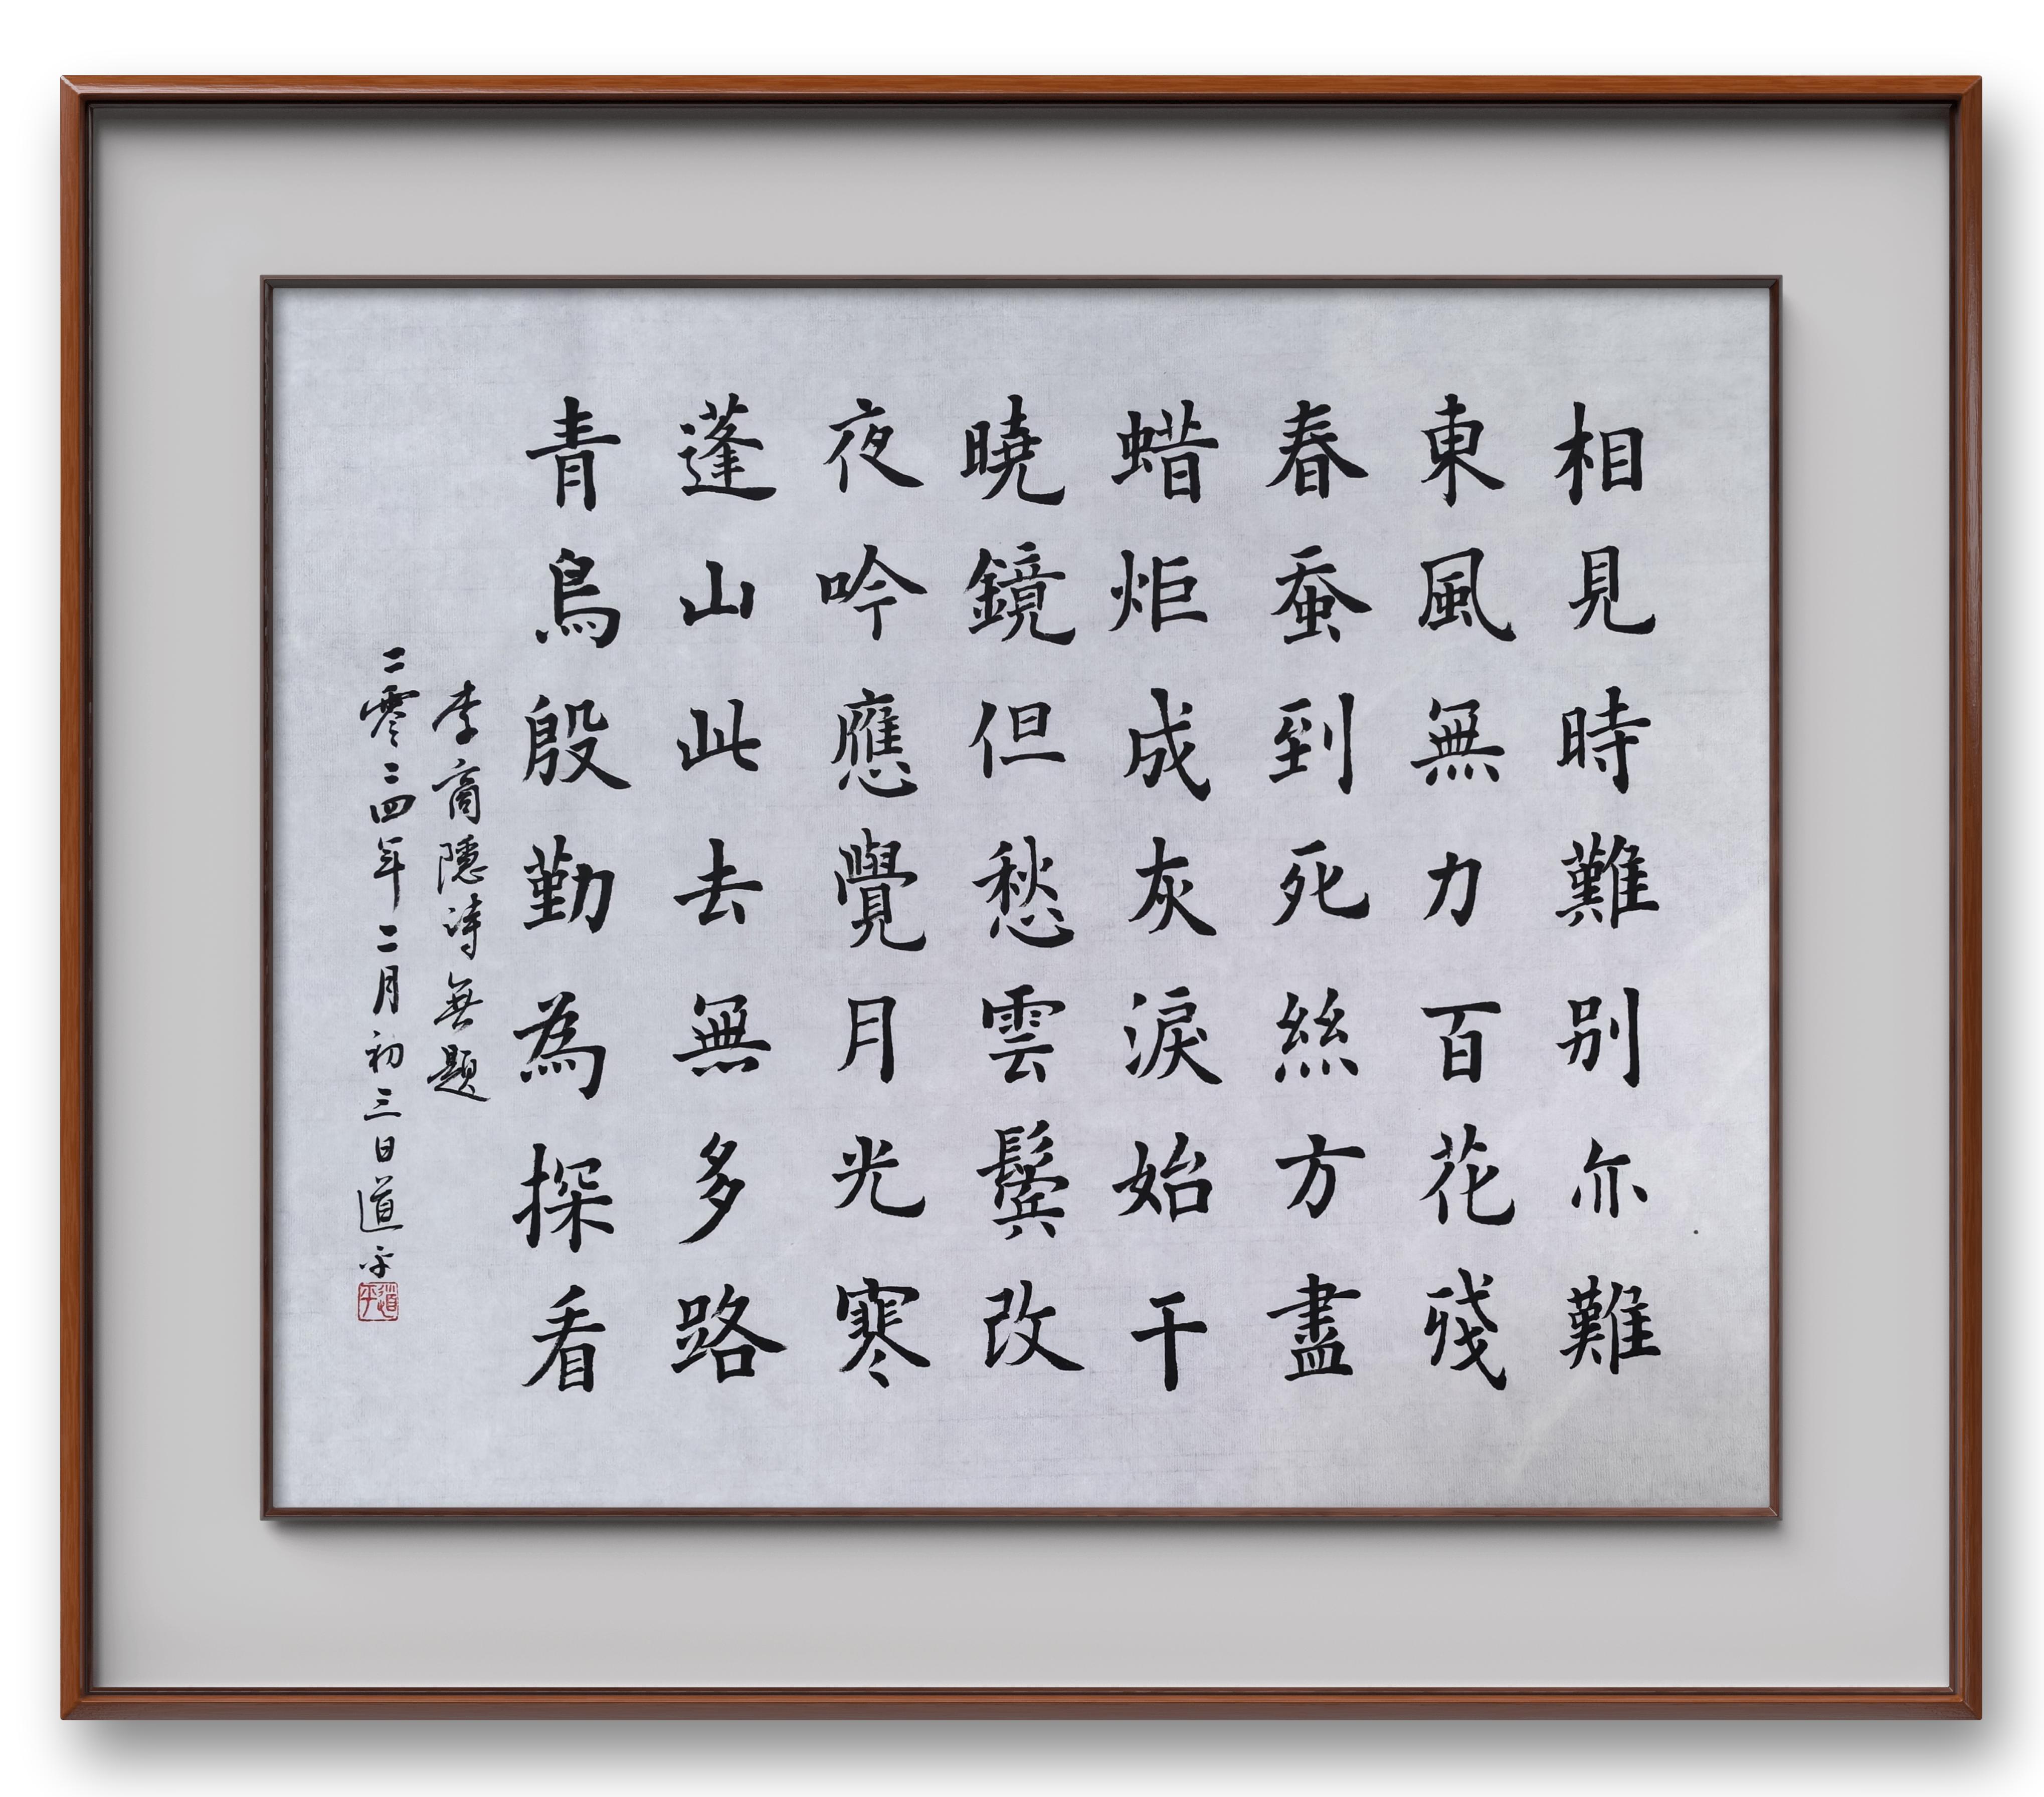 相見時難别亦難
東風無力百花殘
春蚕到死絲方盡
蜡炬成灰淚始干
曉鏡但愁雲鬢改
夜吟應覺月光寒
蓬山此去無多路
青鳥殷勤為探看
李商隱詩無題
二零二四年二月初三日道平
道平